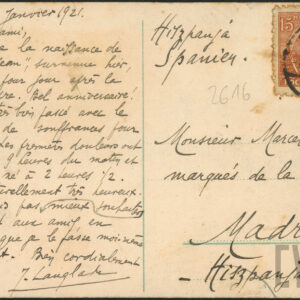 Janvier 1921.
ami,
la naissance de
ean" survenue hier,
jour pour après la
Bel anniversaire!
très bien passé avec le
de souffrances pour
premières douleurs ont
9 heures du matin et
né à 2 heures 1/2.
turellement très heureux.
pas mieux souhaiter
aux amis en
que je le fasse moi-même
Bien cordialement
J. Langlade
Hiszpanja
Spanien.
2616
15
Monsieur Marcel
marqués de la
Madr
Hiszpanja